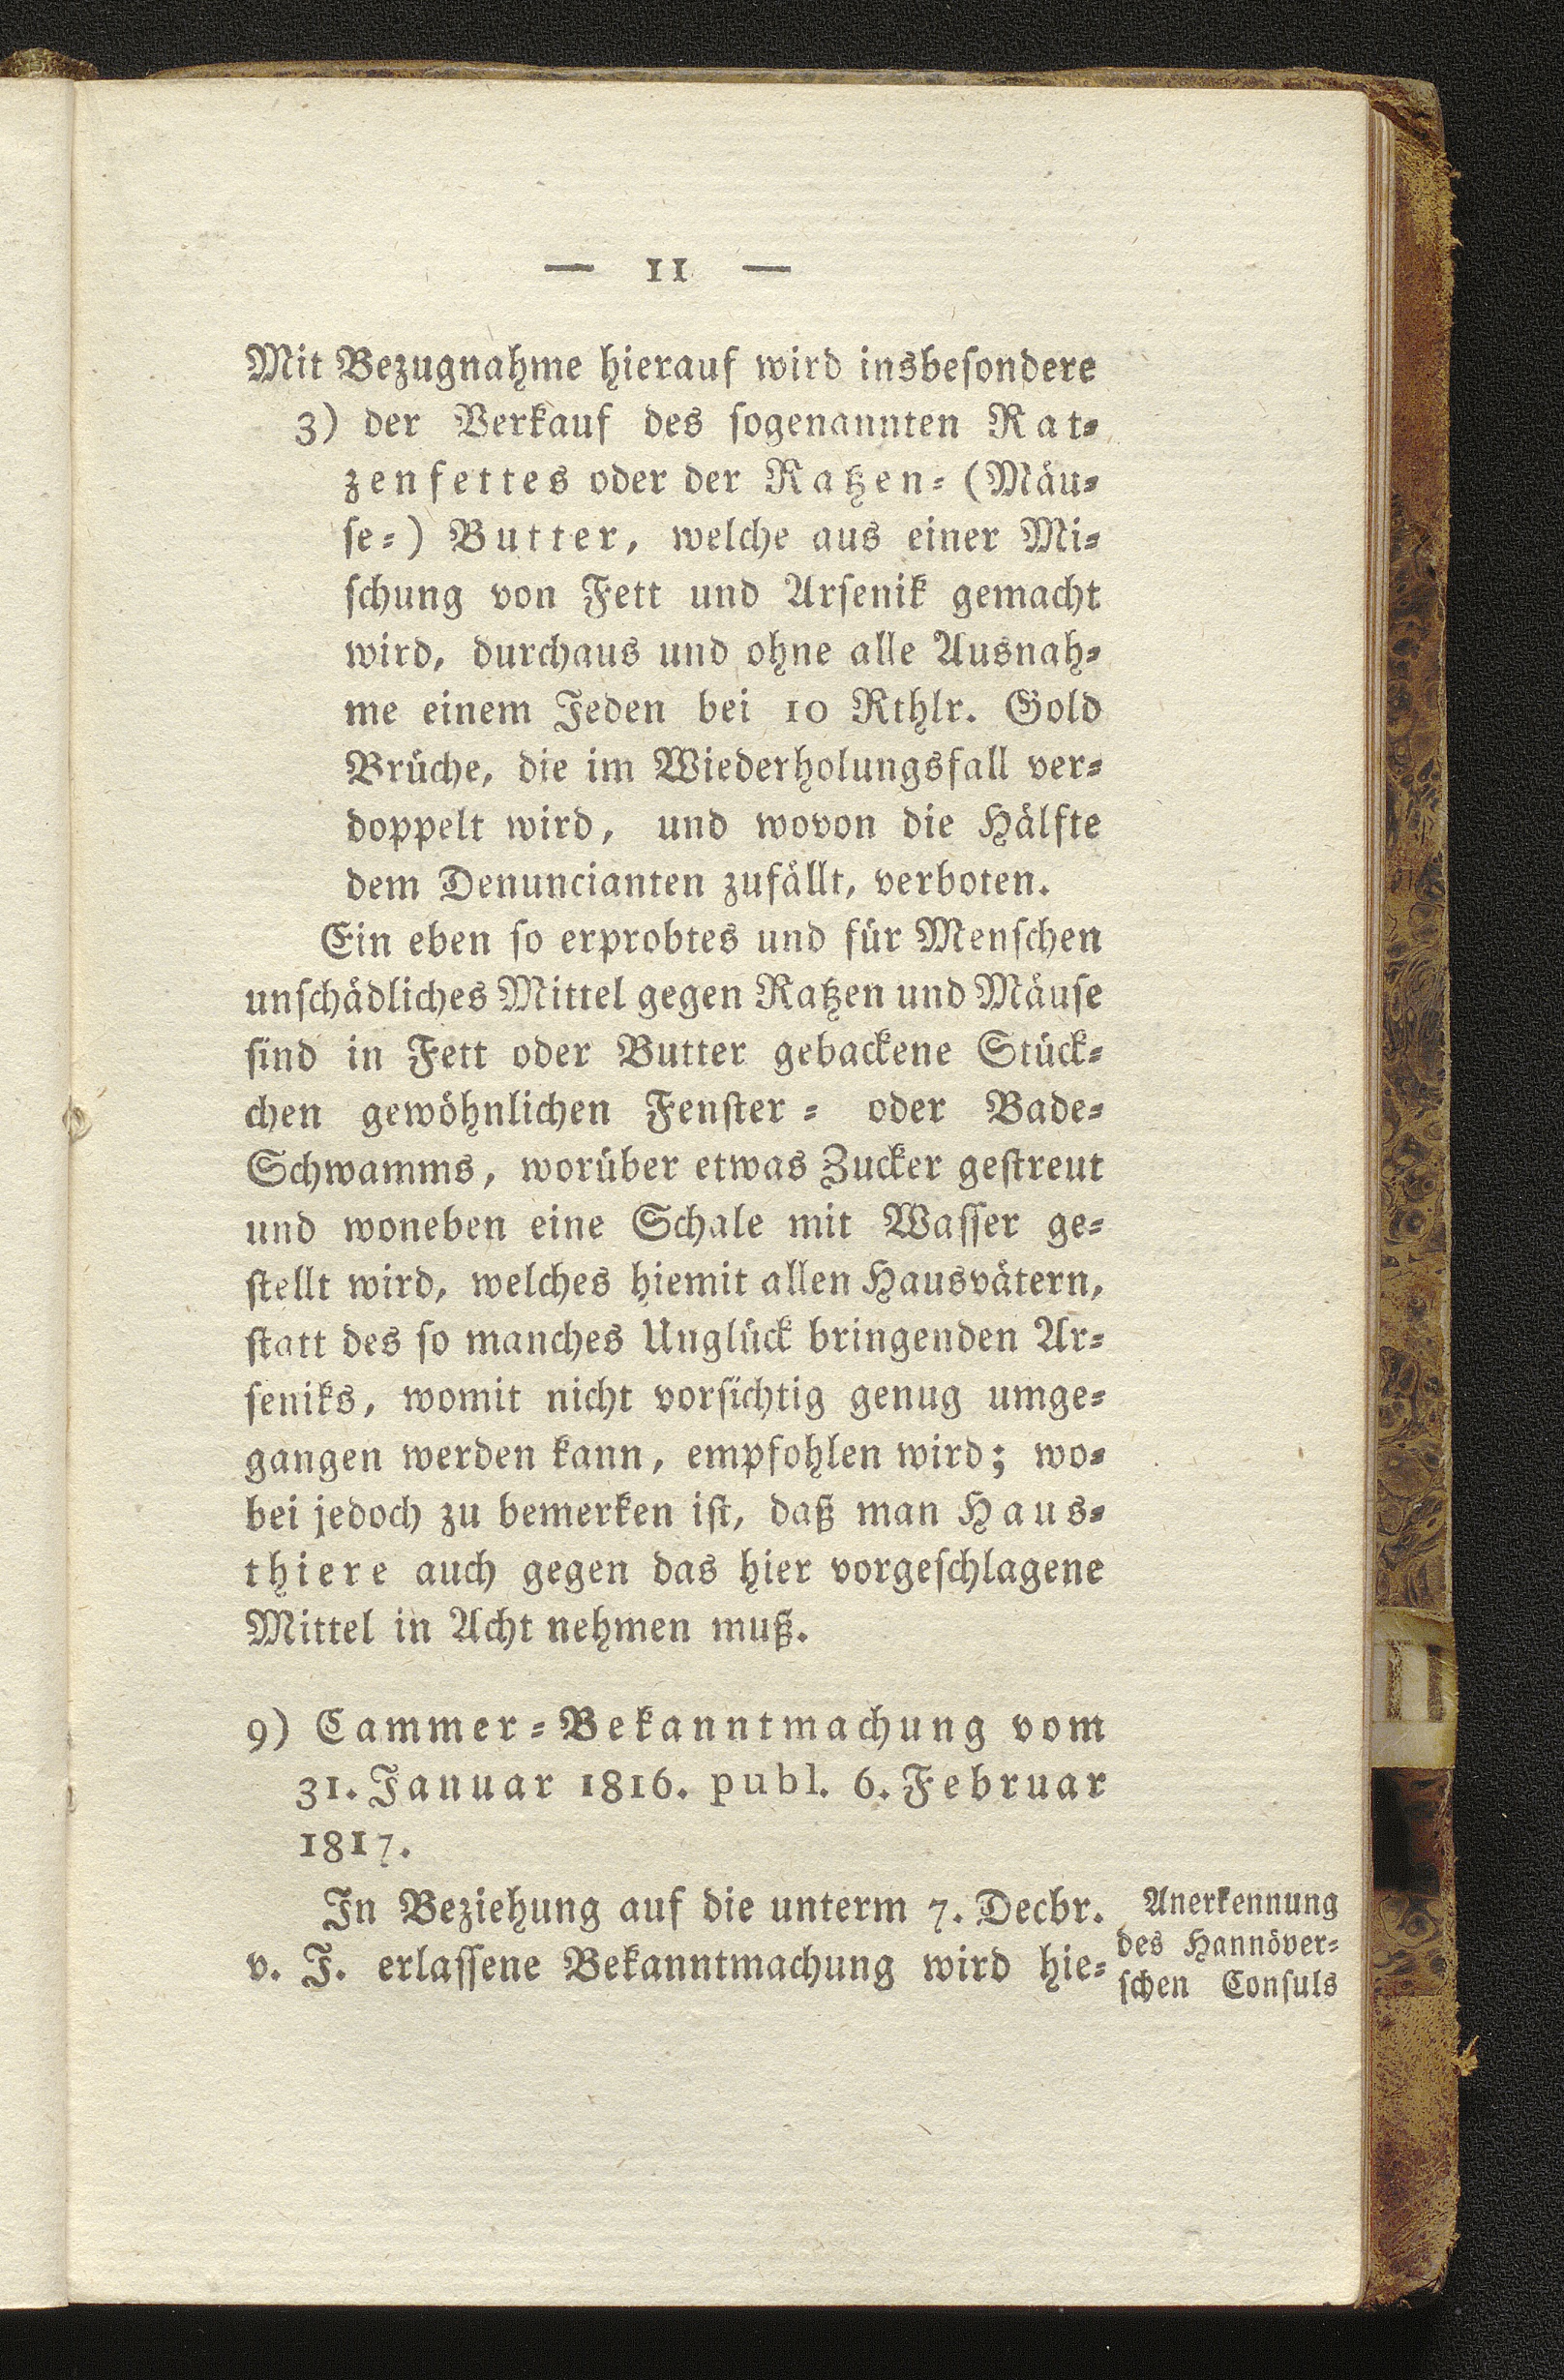 — 11 —
Mit Bezugnahme hierauf wird insbeſondere
3) der Verkauf des ſogenannten Rat⸗
zenfettes oder der Ratzen⸗ (Mäu⸗
ſe⸗) Butter, welche aus einer Mi⸗
ſchung von Fett und Arſenik gemacht
wird, durchaus und ohne alle Ausnah⸗
me einem Jeden bei 10 Rthlr. Gold
Brüche, die im Wiederholungsfall ver⸗
doppelt wird, und wovon die Hälfte
dem Denuncianten zufällt, verboten.
Ein eben ſo erprobtes und für Menſchen
unſchädliches Mittel gegen Ratzen und Mäuſe
ſind in Fett oder Butter gebackene Stück⸗
chen gewöhnlichen Fenſter⸗ oder Bade⸗
Schwamms, worüber etwas Zucker geſtreut
und woneben eine Schale mit Waſſer ge⸗
ſtellt wird, welches hiemit allen Hausvätern,
ſtatt des ſo manches Unglück bringenden Ar⸗
ſeniks, womit nicht vorſichtig genug umge⸗
gangen werden kann, empfohlen wird; wo⸗
bei jedoch zu bemerken iſt, daß man Haus⸗
thiere auch gegen das hier vorgeſchlagene
Mittel in Acht nehmen muß.
9) Cammer⸗Bekanntmachung vom
31. Januar 1816. publ. 6. Februar
1817.
In Beziehung auf die unterm 7. Decbr.
v. J. erlaſſene Bekanntmachung wird hie⸗
Anerkennung
des Hannöver⸗
ſchen Conſuls